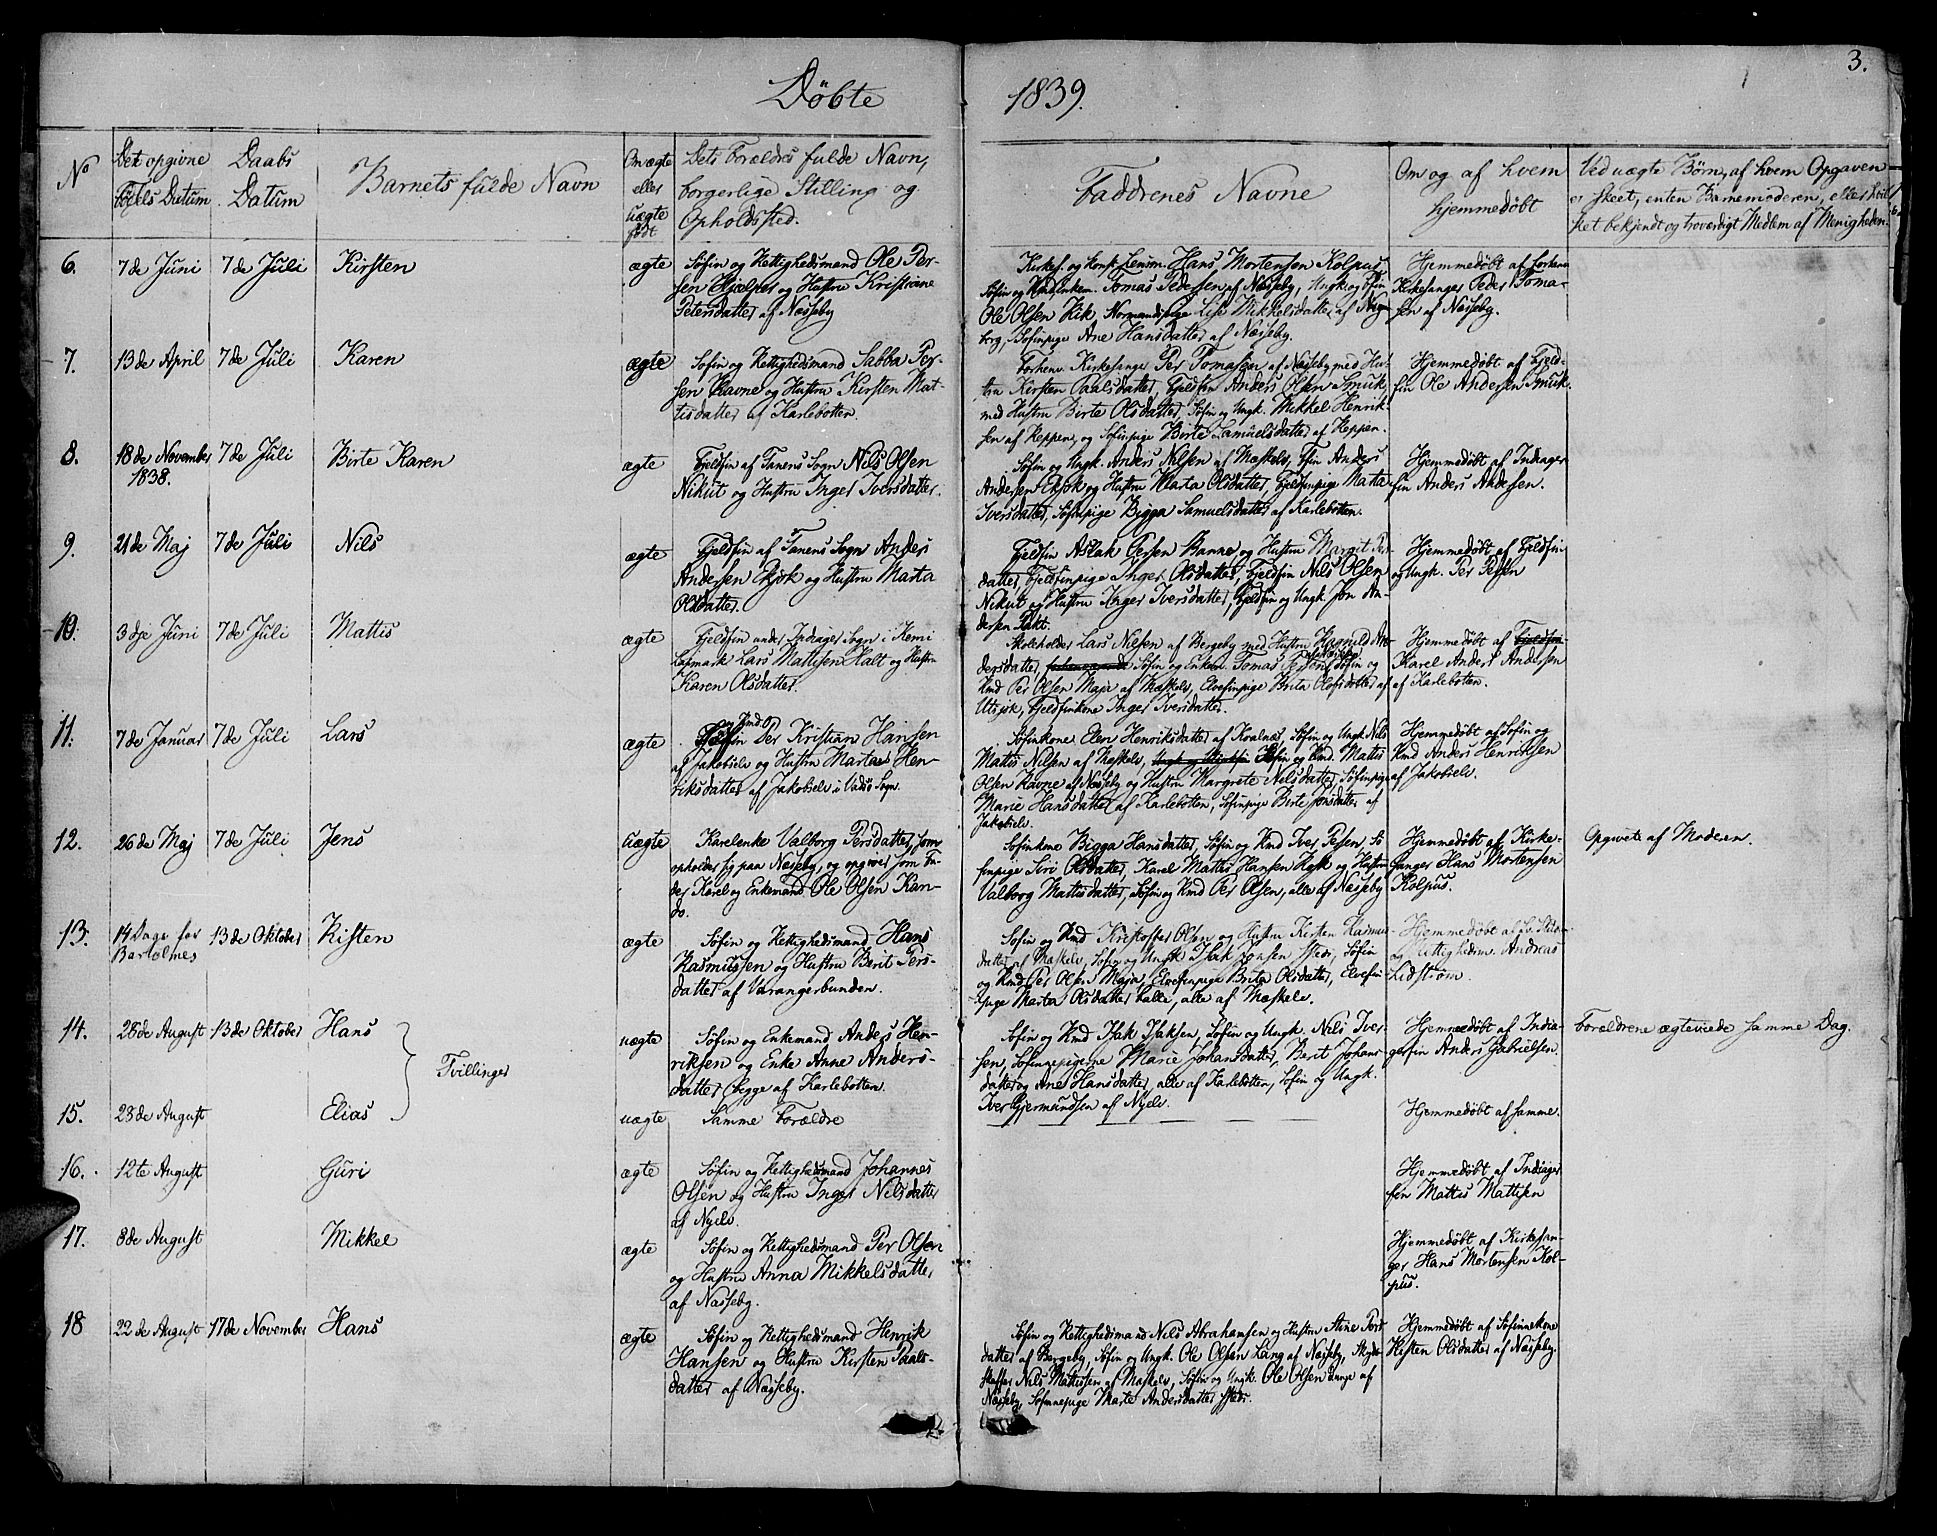 3.
Døbte 1839.
No
Det opgivne Fødsels Datum
Daabs Datum
Barnets fulde Navn
Om ægte eller uægte født
Dets Forældres fulde Navn, borgerlige Stilling og Opholdssted.
Faddrenes Navne
Om og af hvem hjemmedøbt
Ved uægte Børn, af hvem Opgaven er skeet, enten Barnemoderen, eller hvilket bekjendt og troværdigt Medlem af Menigheden.
6. 7de Juni 7de Juli Kirsten ægte
Søfin og Rettighedsmand Ole Per-
sen og Hustru Kristiane
Petersdatter af Næsseby
Kirkes. og konst. Lensm. Hans Mortensen Kolpus,
Søfin og Tomas Pedersen af Næsseby, Ungk. og Søfin
Ole Olsen Kik, Normandspige Lise Mikkelsdatter af Nyg-
borg, Søfinpige Ane Hansdatter af Næsseby.
Hjemmedøbt af forhenv.
Kirkesanger Peder Toma-
sen af Næsseby.
7. 13de April 7de Juli Karen ægte
Søfin og Rettighedsmand Sabba Per-
sen Ravne og Hustru Kirsten Mat-
tisdatter af Karlebotten.
Forhenv. Kirkesanger Per Tomasen af Næsseby med Hu-
stru Kirsten Paalsdatter, Fjeldfin Anders Olsen Smuk
med Hustru Birte Olsdatter, Søfin og Ungk. Mikkel Henrik-
sen af Reppen, og Søfinpige Birte Samuelsdatter af Reppen.
Hjemmedøbt af Fjeld-
fin Ole Andersen Smuk.
8. 18de November 7de Juli Birte Karen ægte
1838.
Fjeldfin af Tanens Sogn Nils Olsen
Nikut og Hustru Inger Iversdatter.
Søfin og Ungk. Anders Nilsen af Mæskelv, Fjfin Anders
Andersen Ekjok og Hustru Marta Olsdatter, Fjeldfinpige Marta
Iversdatter, Søfinpige Bigga Samuelsdatter af Karlebotten.
Hjemmedøbt af Indiager
fin Anders Andersen.
9. 21de Maj 7de Juli Nils ægte
Fjeldfin af Tanens Sogn Anders
Andersen Ekjok og Hustru Marta
Olsdatter.
Fjeldfin Aslak Persen Banne og Hustru Margit Per-
datter, Fjeldfinpige Inger Olsdatter, Fjeldfin Nils Olsen
Nikut og Hustru Inger Iversdatter, Fjeldfin og Ungk. Jon An-
dersen
Hjemmedøbt af Fjeldfin
og Ungk. Per Persen
10. 3dje Juni 7de Juli Mattis ægte
Fjeldfin under Indiager Sogn i Kemi
Lapmark Lars Mattisen Halt og Hustru
Karen Olsdatter.
Skoleholder Lars Nilsen af Bergeby med Hustru Ragnild An-
dersdatter, Søfin og Enkem. Tomas Persen, Søfin og
Kmd Per Olsen Maja af Mæskelv, Elvefinpige Brita Olsdatter af
Utsjok, Fjeldfinkone Inger Iversdatter.
Hjemmedøbt af Fjeldfin-
Karel Anders Andersen
af Karlebotten.
11. 7de Januar 7de Juli Lars ægte
Søfin og Kmd Per Kristian Hansen
af Jakobselv og Hustru Marta Hen-
riksdatter af Jakobselv i Vadsø Sogn.
Søfinkone Elen Henriksdatter af Kvalnæs, Søfin og Ungk Nils
Mattis Nilsen af Mæskelv, Søfin og Kmd. Mattis
Olsen Ravne af Næsseby og Hustru Margrete Nilsdatter, Søfinpige
Marie Hansdatter af Karlebotten, Søfinpige Birte Jonsdatter af
Jakobselv.
Hjemmedøbt af Søfin og
Kmd Anders Henriksen
af Jakobselv.
12. 26de Maj 7de Juli Jens Uægte
Karelenke Valborg Persdatter, som
opholder sig paa Næsseby, og opgiver som Fa-
der Karel og Enkemand Ole Olsen Kan-
do.
Søfinkone Bigga Hansdatter, Søfin og Kmd Iver Persen, Sø-
finpige Siri Olsdatter, Karel Mattis Hansen Kyk og Hustru
Valborg Mattisdatter, Søfin og Kmd Per Olsen, alle af Næsseby
Hjemmedøbt af Kirke-
sanger Hans Mortensen
Kolpus.
Opgivete af Moderen.
13. 14 Dage før 13de Oktober Kisten ægte
Bartolmes
Søfin og Rettighedsmand Hans
Rasmussen og Hustru Berit Pers-
datter af Varangerbunden.
Søfin og Kmd Kristoffer Olsen og Hustru Kirsten Rasmus-
datter af Mæskelv, Søfin og Ungk Isak Jonsen, Søfin
og Kmd Per Olsen Maja, Elvefinpige Brita Olsdatter, Elvefin-
pige Marta Olsdatter Falle, alle af Mæskelv.
Hjemmedøbt af
og Rettighedsm. Andreas
Lidstrøm.
14. 28de August 13de Oktober Hans uægte
Tvillinger
Søfin og Enkemand Anders Hen-
riksen og Enke Anne Anders-
datter, begge af Karlebotten.
Søfin og Kmd Isak Isaksen, Søfin og Ungk. Nils Iver-
sen, Søfinnepigerne Marie Johansdatter, Berit Johans-
datter og Ane Hansdatter, alle af Karlebotten, Søfin og Ungk.
Iver Gjermundsen af Nyelv.
Hjemmedøbt af India-
gerfin Anders Gabrielsen.
Forældrene ægteviede samme Dag.
15. 28de August Elias uægte
Samme Forældre
Hjemmedøbt af samme.
16. 12te August Guri ægte
Søfin og Rettighedsmand Johannes
Olsen og Hustru Inger Nilsdatter
af Nyelv.
Hjemmedøbt af Indiager
fin Mattis Mattisen
17. 8de August Mikkel ægte
Søfin og Rettighedsmand Per Olsen
og Hustru Anna Mikkelsdatter
af Næsseby.
Hjemmedøbt af Kirkesan-
ger Hans Mortensen Kol-
pus.
18 22de August 17de November Hans ægte
Søfin og Rettighedsmand Henrik
Hansen og Hustru Kirsten Paals-
datter af Næsseby.
Søfin og Rettighedsmand Nils Abrahamsen og Hustru Stine Pers-
datter af Bergeby, Søfin og Ungk. Ole Olsen Lang af Næsseby, Skyds-
skaffer Nils Mattissen af Mæskelv, Søfin og Ungk. Ole Olsen af
Næsseby, Søfinnepige Marte Andersdatter
Hjemmedøbt af Søfinnekone
Kisten Olsdatter af Næsseby.